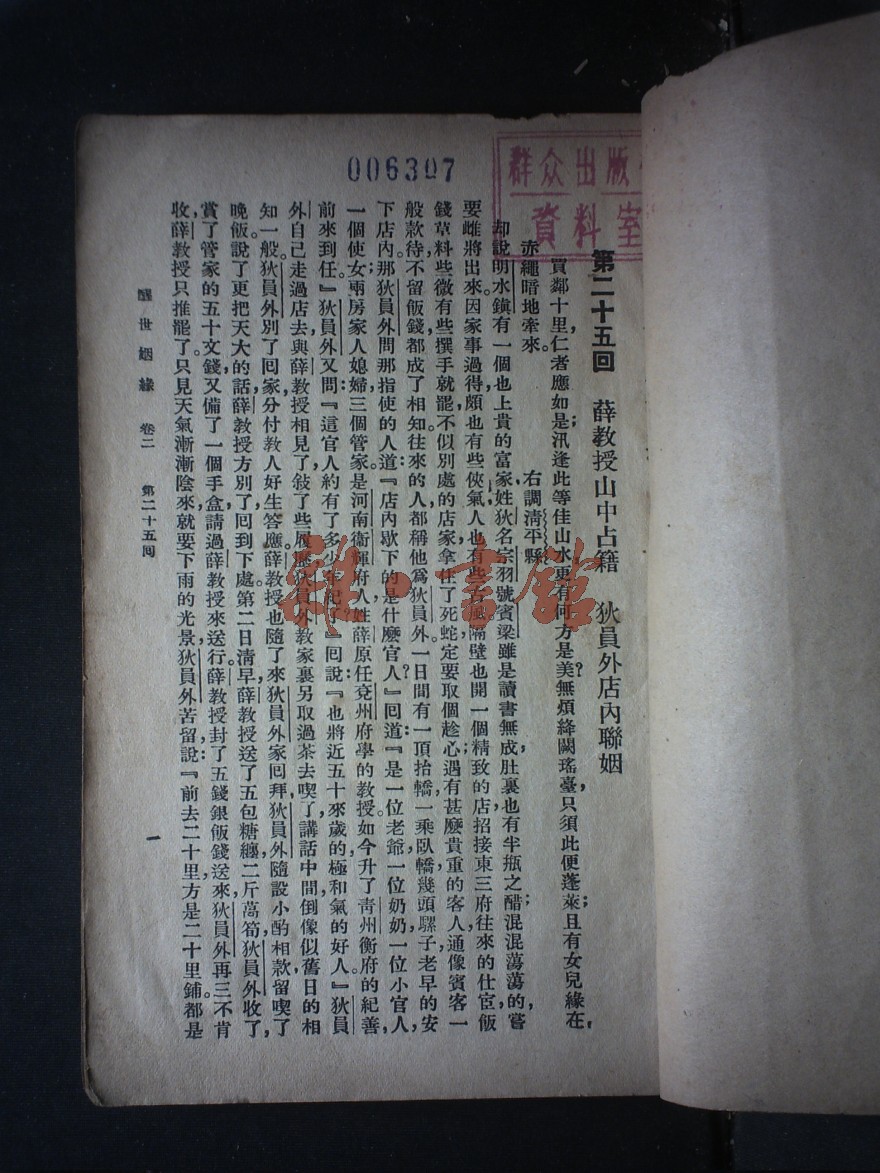 006307
群众出版
資料室
第二十五回　薛教授山中占籍　狄員外店內聯姻
買鄰十里，仁者應如是；汎逢此等佳山水，更有何方是美？無煩絳闕瑤臺，只須此便蓬萊；且有女兒緣在，
赤繩暗地牽來。　右調清平縣
却說明水鎮有一個也上貴的富家，姓狄，名宗羽，號賓梁，雖是讀書無成，肚裏也有半瓶之醋，混混蕩蕩的嘗
要雌將出來。因家事過得，頗也有些俠氣，人也有些古風。隔壁也開一個精致的店，招接東三府往來的仕宦。飯
錢草料，些微有些撰手就罷，不似別處的店家，拿住了死蛇，定要取個趁心；遇有甚麼貴重的客人，通像賓客一
般款待，不留飯錢，都成了相知。往來的人都稱他爲狄員外。一日間，有一頂抬轎，一乘臥轎，幾頭騾子，老早的安
下店內。那狄員外問那指使的人道：『店內歇下的是什麽官人？』囘道：『是一位老爺，一位奶奶，一位小官人，
一個使女，兩房家人媳婦，三個管家。是河南衛輝府人，姓薛，原任兗州府學的教授，如今升了青州衡府的紀善，
前來到任。』狄員外又問：『這官人約有了多少年紀？』囘說：『也將近五十來歲的，極和氣的好人。』狄員
外自己走過店去，與薛教授相見了，敍了些履歷。狄員外教家裏另取過茶去喫了。講話中間，倒像似舊日的相
知一般。狄員外別了囘家，分付教人好生答應。薛教授也隨了來狄員外家囘拜，狄員外隨設小酌相款，留喫了
晚飯，說了更把天大的話，薛教授方別了囘到下處。第二日清早，薛教授送了五包糖纏，二斤萵筍，狄員外收了，
賞了管家的五十文錢，又備了一個手盒，請過薛教授來送行。薛教授封了五錢銀飯錢送來，狄員外再三不肯
收，薛教授只推罷了。只見天氣漸漸陰來，就要下雨的光景，狄員外苦留，說：『前去二十里方是二十里鋪，都是
醒世姻緣　卷二　第二十五囘
一